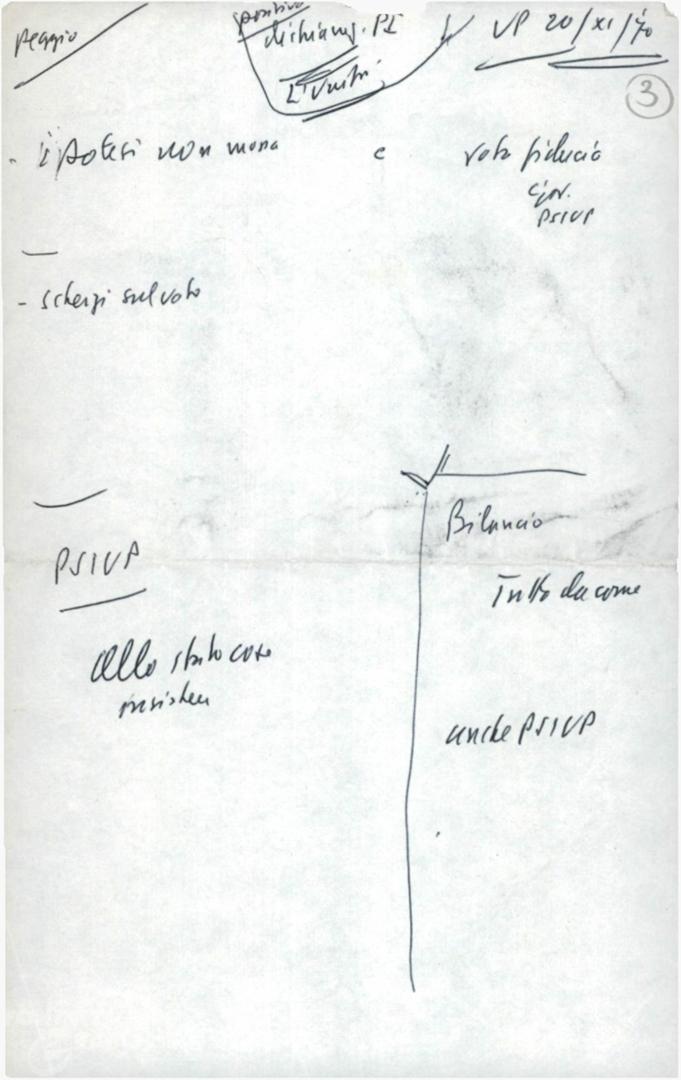 Peggio
positivo
dichiaraz. PI
L'Unità
UP 20/XI/70
3
- ipotesi non mono e voto fiducia
Gov.
PSIUP
- scherzi sul voto
PSIUP
Allo stato cose
insistere
Bilancio
Tutto da come
anche PSIUP